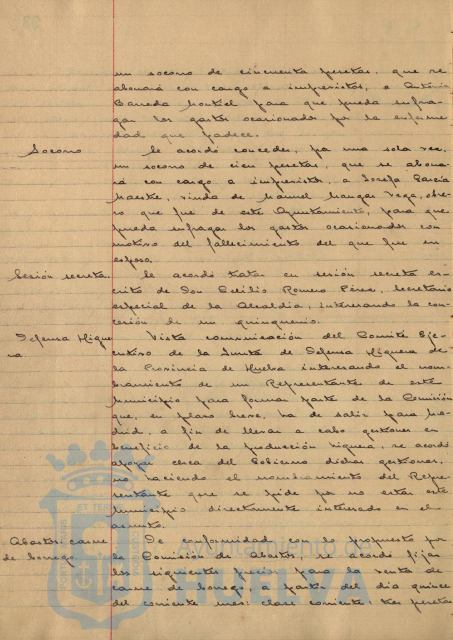 un socorro de cincuenta pesetas, que se
abonará con cargo a imprevistos, a Antonia
Bareda Montiel para que pueda sufra-
gar los gastos ocasionados por la enferme
dad que padece.
Socorro Se acordó conceder, por una sola vez,
un socorro de cien pesetas, que se abona
rá con cargo a imprevistos, a Josefa García
Maestre, viuda de Manuel Mangas Vega, obre-
ro que fue de este Ayuntamiento, para que
pueda sufragar los gastos ocasionados con
motivo del fallecimiento del que fue su
esposo.
Sesión secreta. Se acordó tratar en sesión secreta es-
crito de Don Cecilio Romero Pérez, secretario
especial de la Alcaldía, interesando la con-
cesión de un quinquenio.
Defensa Higue Vista comunicación del Comité Eje-
ra. cutivo de la Junta de Defensa Higuera de
la Provincia de Huelva interesando el nom-
bramiento de un Representante de este
Municipio para formar parte de la Comisión
que, en plazo breve, ha de salir para Ma-
drid, a fin de llevar a cabo gestiones en
beneficio de la producción higuera, se acordó
apoyar cerca del Gobierno dichas gestiones,
no haciendo el nombramiento del Repre-
sentante que se pide por no estar este
Municipio directamente interesado en el
asunto.
Abastos: carne De conformidad con lo propuesto por
de borrego. la Comisión de Abastos, se acordó fijar
los siguientes precios para la venta de
carne de borrego, a partir del día quince
del corriente mes: clase corriente: tres pesetas
Ayuntamiento de
HUELVA